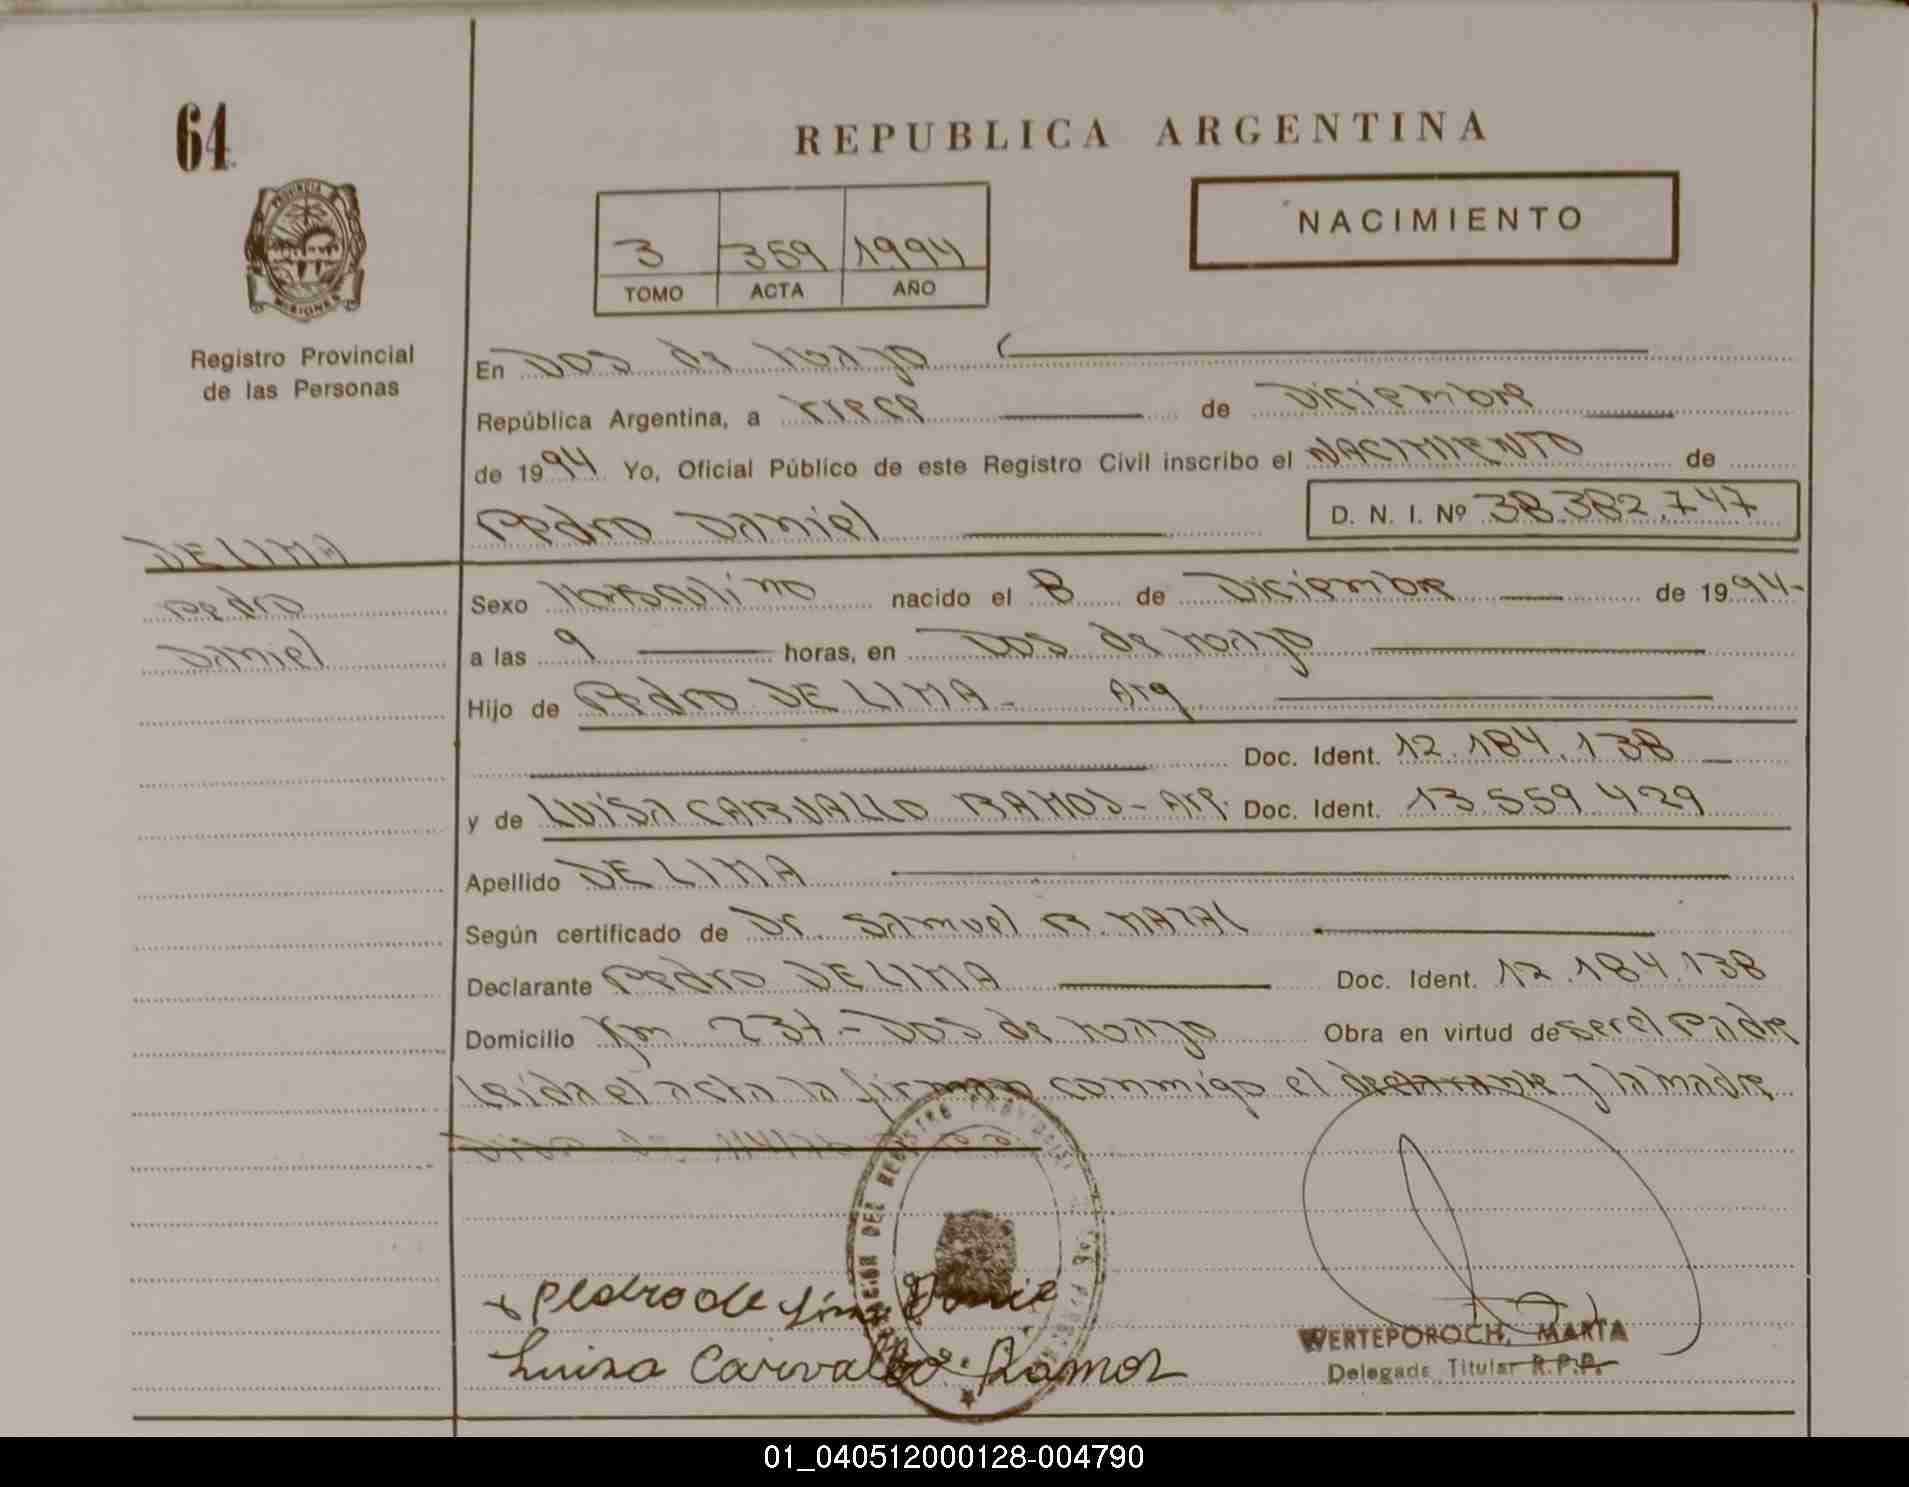 64
REPUBLICA ARGENTINA
PROVINCIA
MISIONES
NACIMIENTO
3 359 1994
TOMO ACTA AÑO
Registro Provincial
de las Personas
En Dos de Mayo
República Argentina, a trece de Diciembre
de 1994 Yo, Oficial Público de este Registro Civil inscribo el NACIMIENTO de
Pedro Daniel D. N. I. Nº 38.382.747
DE LIMA
Pedro
Daniel
Sexo Masculino nacido el 8 de Diciembre de 1994-
a las 9 horas, en Dos de Mayo
Hijo de Pedro DE LIMA - Arg
Doc. Ident. 12.184.138
y de LUISA CARVALLO RAMOS - Arg. Doc. Ident. 13.559.429
Apellido DE LIMA
Según certificado de Dr. Samuel R. MAZAL
Declarante Pedro DE LIMA Doc. Ident. 12.184.138
Domicilio Km 237 - Dos de Mayo Obra en virtud de ser el Padre
Leída el acta la firman conmigo el declarante y la madre
DEL REGISTRO PROVINCIAL
Pedro de Lima
Luisa Carvallo Ramos
WERTEPOROCH, MARTA
Delegada Titular R.P.P.
01_040512000128-004790